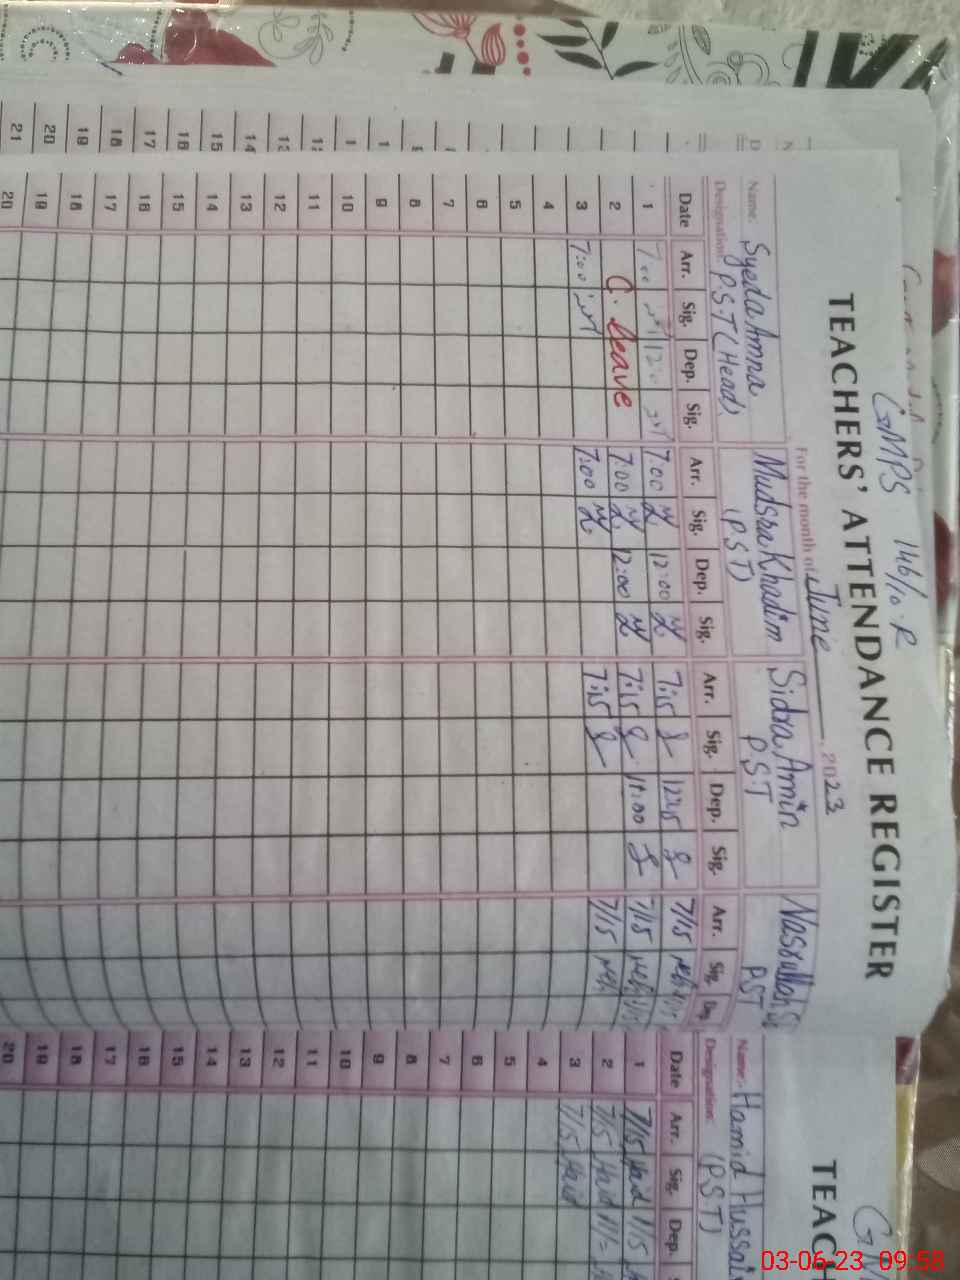 GMPS 146/10.R
TEACHERS' ATTENDANCE REGISTER
For the month of June 2023
Name: Syeda Amna
Designation: P.S.T (Head)
Mudsra Khadim
(P.S.T)
Sidra Amin
P.S.T
Nasrullah
PST
Date Arr. Sig. Dep. Sig. Arr. Sig. Dep. Sig. Arr. Sig. Dep. Sig. Arr. Sig. Dep.
1 7:00 12:00 7:00 12:00 7:15 12:15 7/15
2 C. leave 7:00 12:00 7:15 11:00 7/15
3 7:00 7:00 7:15 7/15
4
5
6
7
8
9
10
11
12
13
14
15
16
17
18
19
20
TEACH
Name: Hamid Hussai
Designation: (P.S.T)
Date Arr. Sig. Dep.
1 7/15 Hamid 11/15
2 7/15 Hamid
3 7/15 Hamid
4
5
6
7
8
9
10
11
12
13
14
15
16
17
18
19
20
14
15
16
17
18
19
20
21
03-06-23 09:58